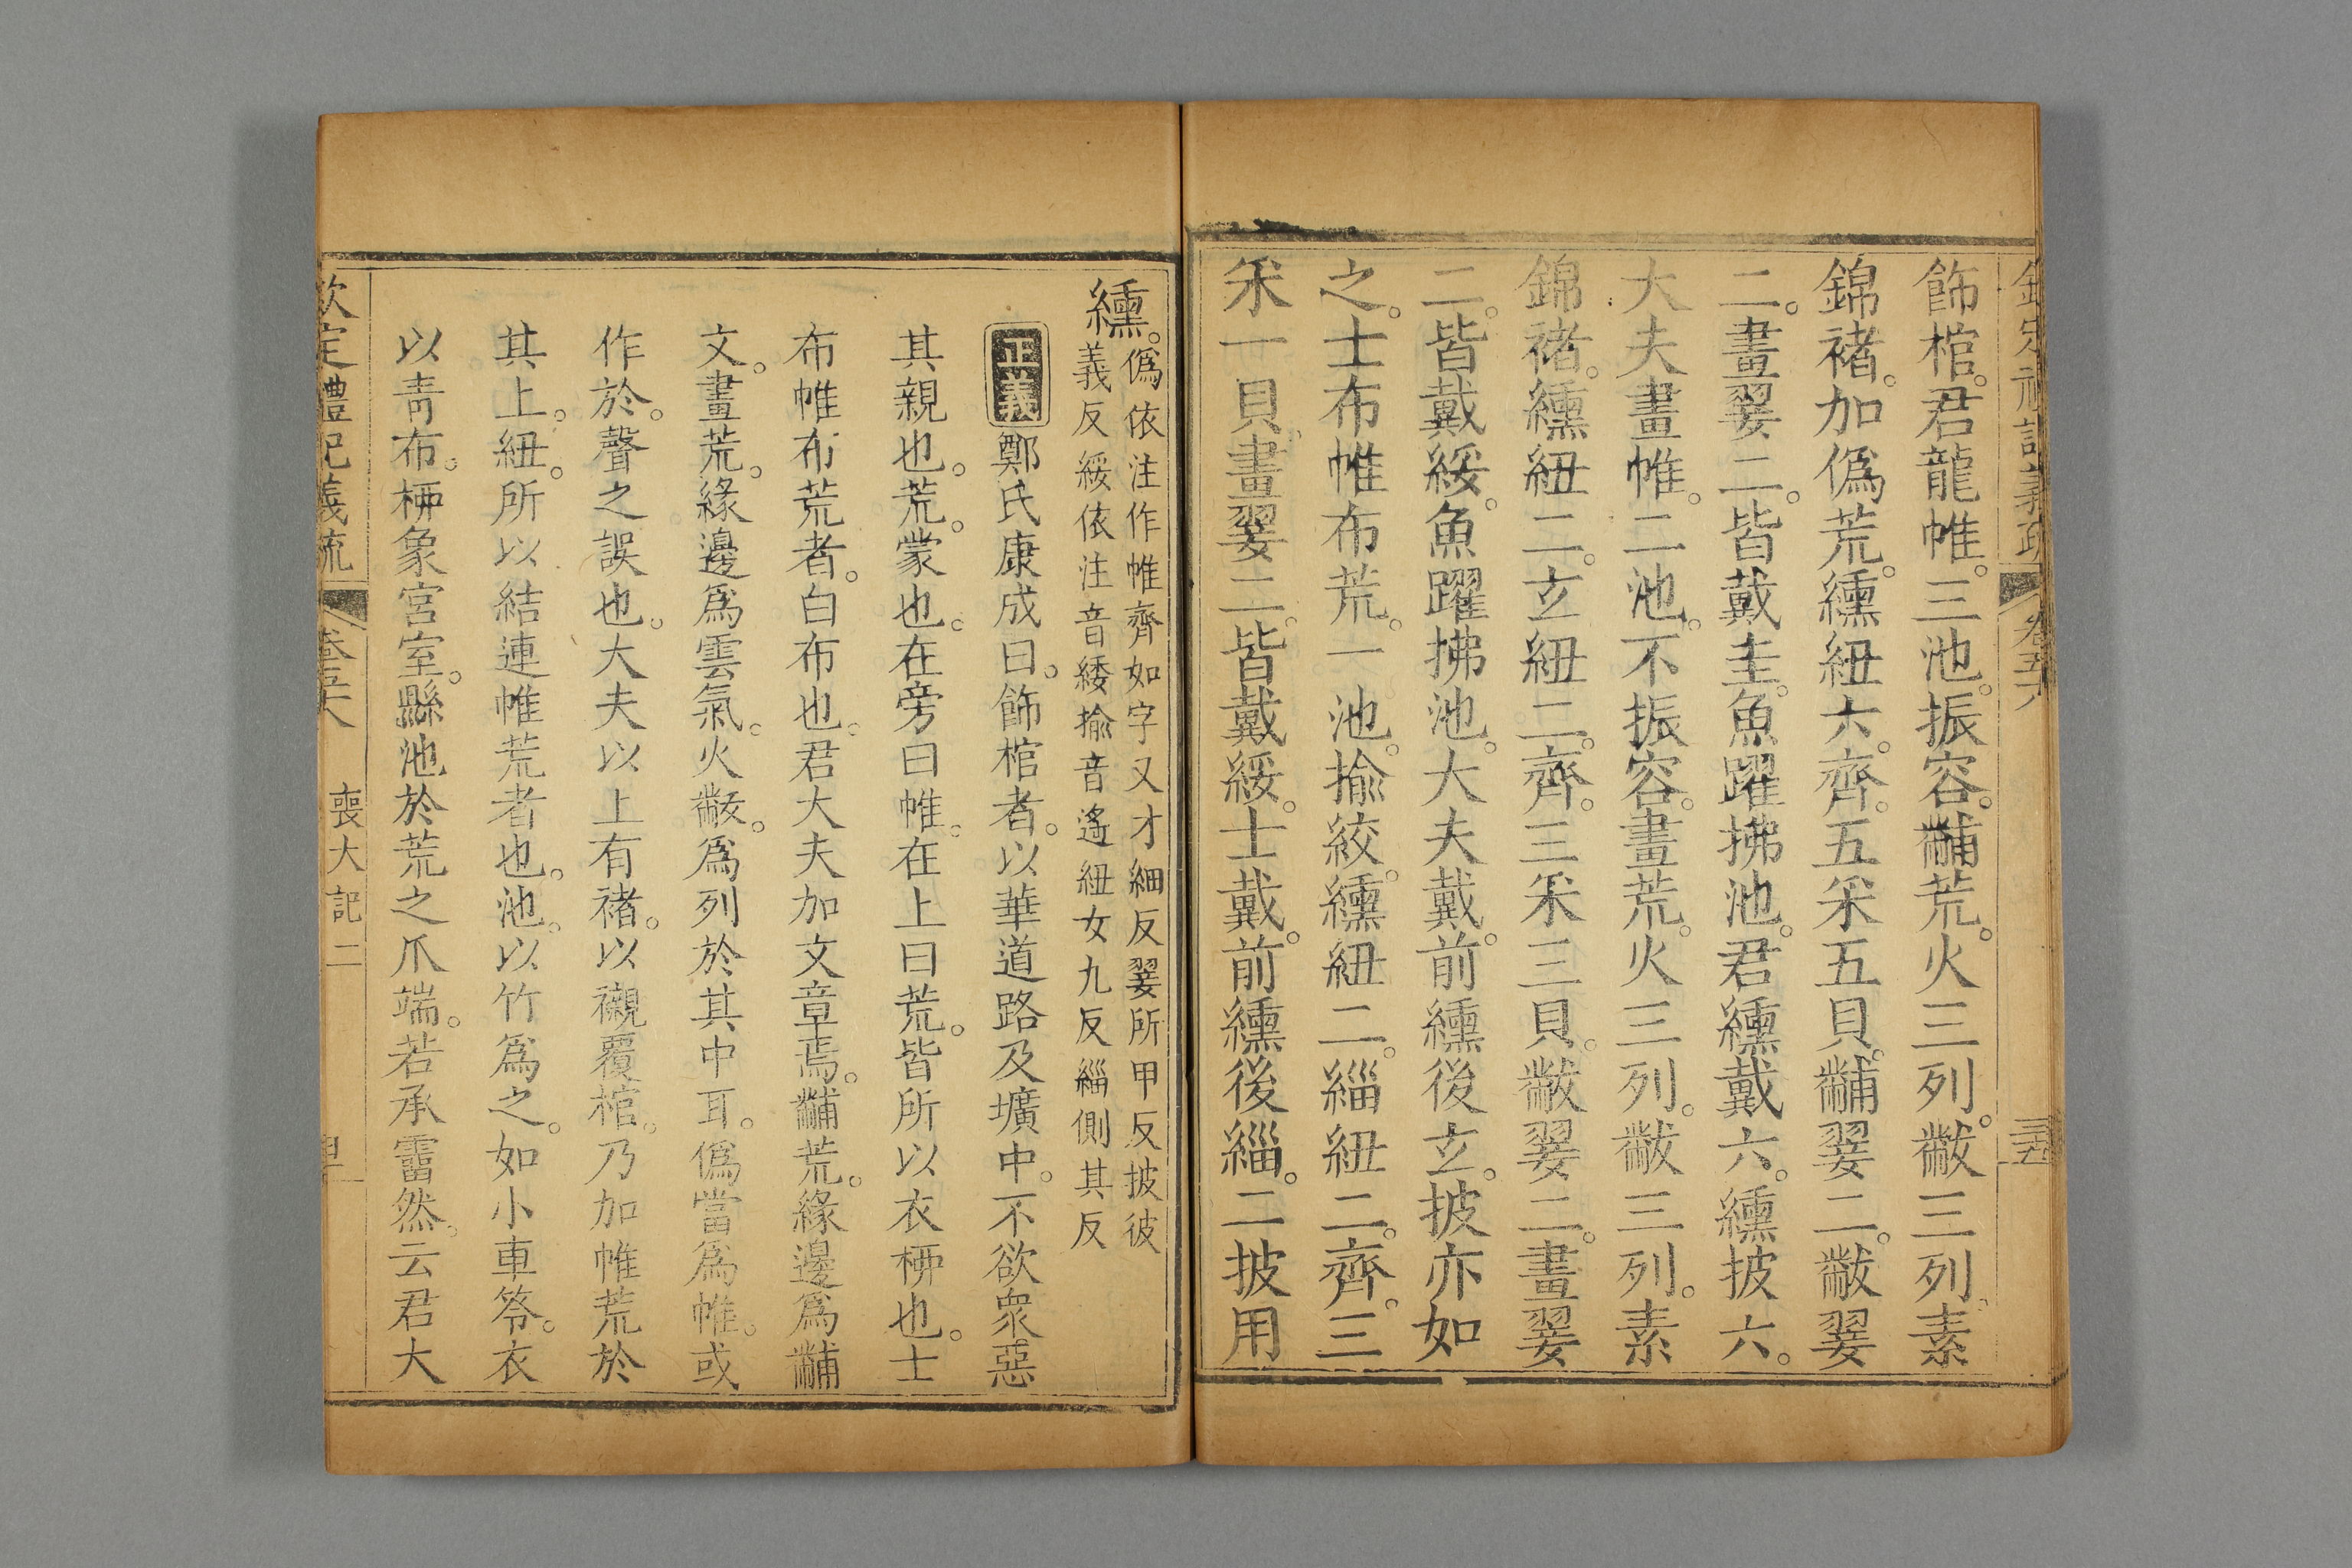 欽定禮記義疏 卷五十八 三五
飾棺。君龍帷。三池。振容。黼荒。火三列。黻三列。素
錦褚。加僞荒。纁紐六。齊。五采五貝。黼翣二。黻翣
二。畫翣二。皆戴圭。魚躍拂池。君纁戴六。纁披六。
大夫畫帷。二池。不振容。畫荒。火三列。黻三列。素
錦褚。纁紐二。玄紐二。齊。三采三貝。黻翣二。畫翣
二。皆戴綏。魚躍拂池。大夫戴。前纁後玄。披亦如
之。士布帷布荒。一池。揄絞。纁紐二。緇紐二。齊。三
采一貝。畫翣二。皆戴綏。士戴。前纁後緇。二披用
纁。僞依注作帷齊如字又才細反翣所甲反披彼
義反綏依注音緌揄音遙紐女九反緇側其反
正義鄭氏康成曰。飾棺者。以華道路及壙中。不欲衆惡
其親也。荒。蒙也。在旁曰帷。在上曰荒。皆所以衣柳也。士
布帷布荒者。白布也。君大夫加文章焉。黼荒。緣邊爲黼
文。畫荒。緣邊爲雲氣。火黻。爲列於其中耳。僞當爲帷。或
作於。聲之誤也。大夫以上有褚。以襯覆棺。乃加帷荒於
其上。紐。所以結連帷荒者也。池。以竹爲之。如小車笭。衣
以青布。柳象宮室。縣池於荒之爪端。若承霤然。云君大
欽定禮記義疏 卷五十八 喪大記二